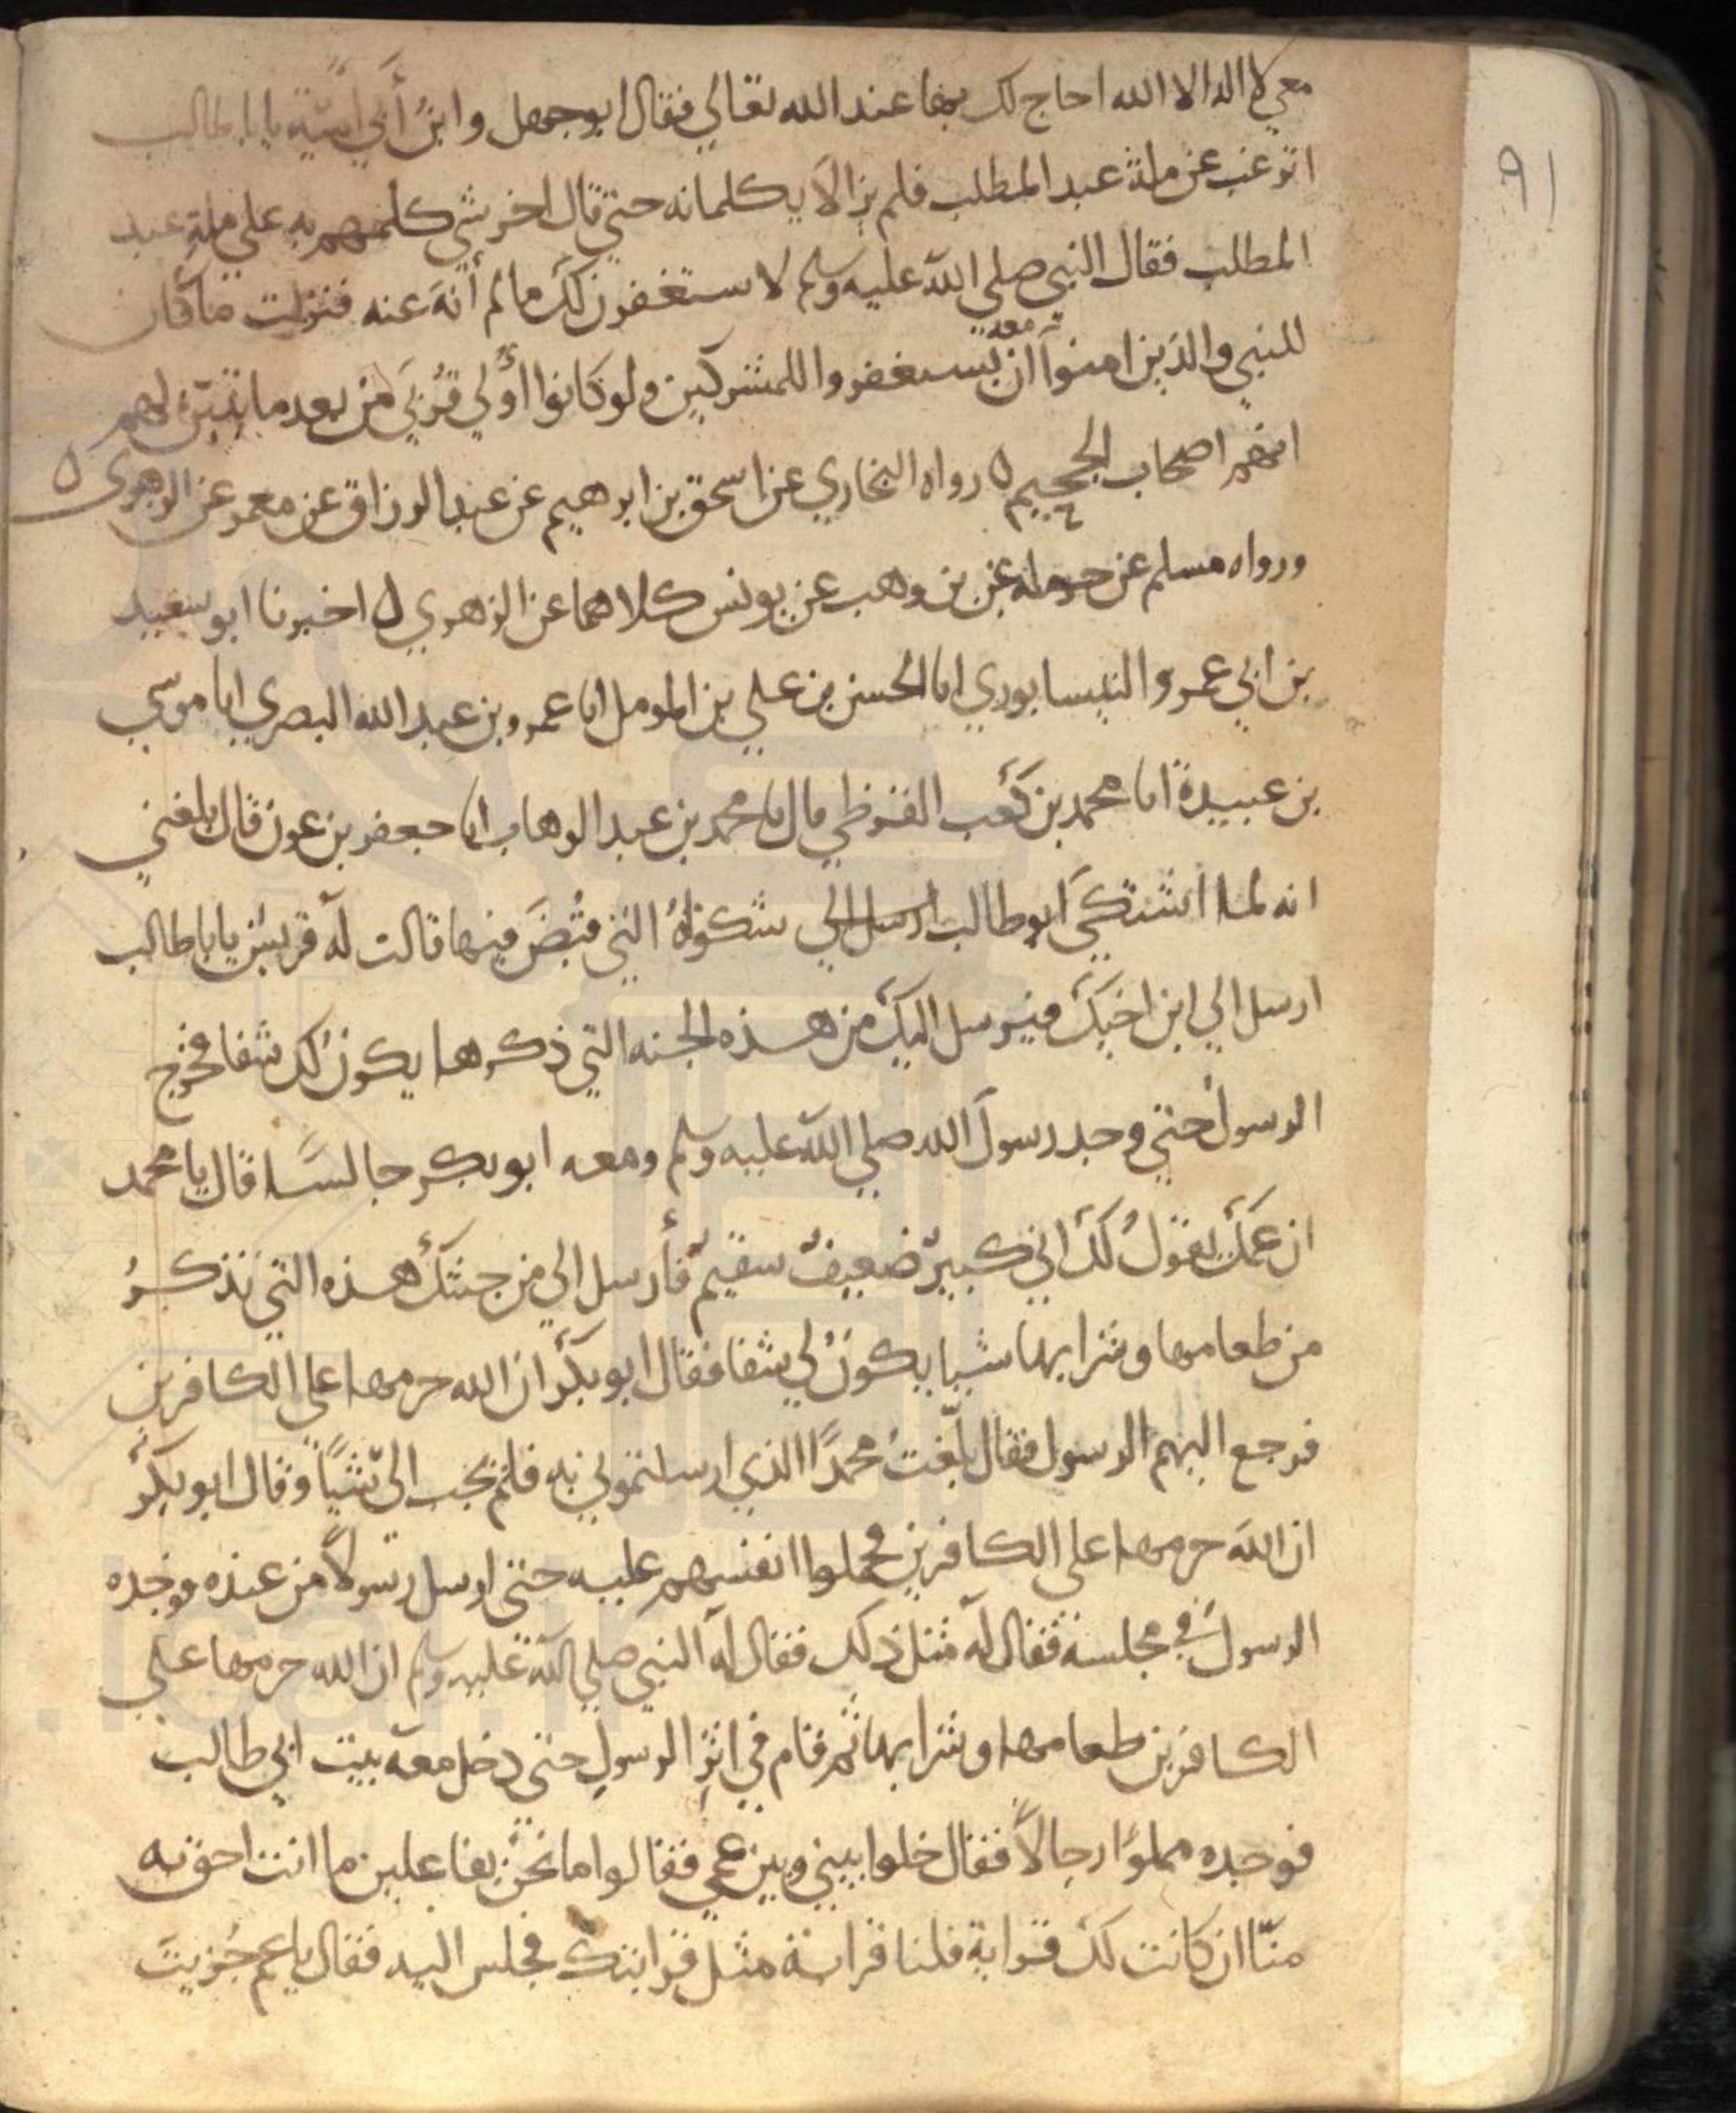 معي لا اله الا الله احاج لك بها عند الله تعالي فقال ابو جهل وابنُ أبي أميّة يا با طالب
91
اترغب عن ملة عبد المطلب فلم يزالا يكلمانه حتي قال اخر شي كلمهم به علي ملة عبد
المطلب فقال النبي صلي الله عليه وسلم لاستغفرن لك ما لم أنهَ عنه فنزلت ما كان
للنبي والذين امنوا معه أن يستغفروا للمشركين ولو كانوا أولي قُربي من بعد ما تبيّن لهم
انهم اصحاب الجحيم ه رواه البخاري عن اسحق بن ابرهيم عن عبد الرزاق عن معمر عن الزهري ه
ورواه مسلم عن حرملة عن بن وهب عن يونس كلاهما عن الزهري ه اخبرنا ابو سعيد
بن ابي عمرو النيسابوري انا الحسن بن علي بن المومل انا عمرو بن عبد الله البصري انا موسي
بن عبيدة انا محمد بن كعب القرظي قال نا محمد بن عبد الوهاب انا جعفر بن عون قال بلغني
انه لما اشتكي ابو طالب ارسل الي شكواهُ التي قُبضَ فيها قالت له قريش يا با طالب
ارسل الي ابن اخيك فيرسل اليك من هذه الجنه التي ذكرها يكون لك شفا فخرج
الرسول حتي وجد رسول الله صلي الله عليه وسلم ومعه ابو بكر جالسًا فقال يا محمد
ان عمك يقولُ لك اني كبيرٌ ضعيفٌ سقيمٌ فأرسل الي من جنتك هذه التي تذكرُ
من طعامها وشرابها شيا يكون لي شفا فقال ابو بكر ان الله حرمها علي الكافرين
فرجع اليهم الرسول فقال بلّغتُ محمدًا الذي ارسلتموني به فلم يجب الىّ شيًا وقال ابو بكر
ان الله حرمها علي الكافرين فحملوا انفسهم عليه حتي ارسل رسولًا من عنده فوجده
الرسول في مجلسه فقال له مثل ذلك فقال له النبي صلي الله عليه وسلم ان الله حرمها علي
الكافرين طعامها وشرابها ثم قام في اثر الرسول حتي دخل معه بيت ابي طالب
فوجده مملوًا رجالًا فقال خلوا بيني وبين عمي فقالوا ما نحن بفاعلين ما انت احق به
منّا ان كانت لك قرابة فلنا قرابة مثل قرابتك فجلس اليه فقال يا عم جُزيتَ